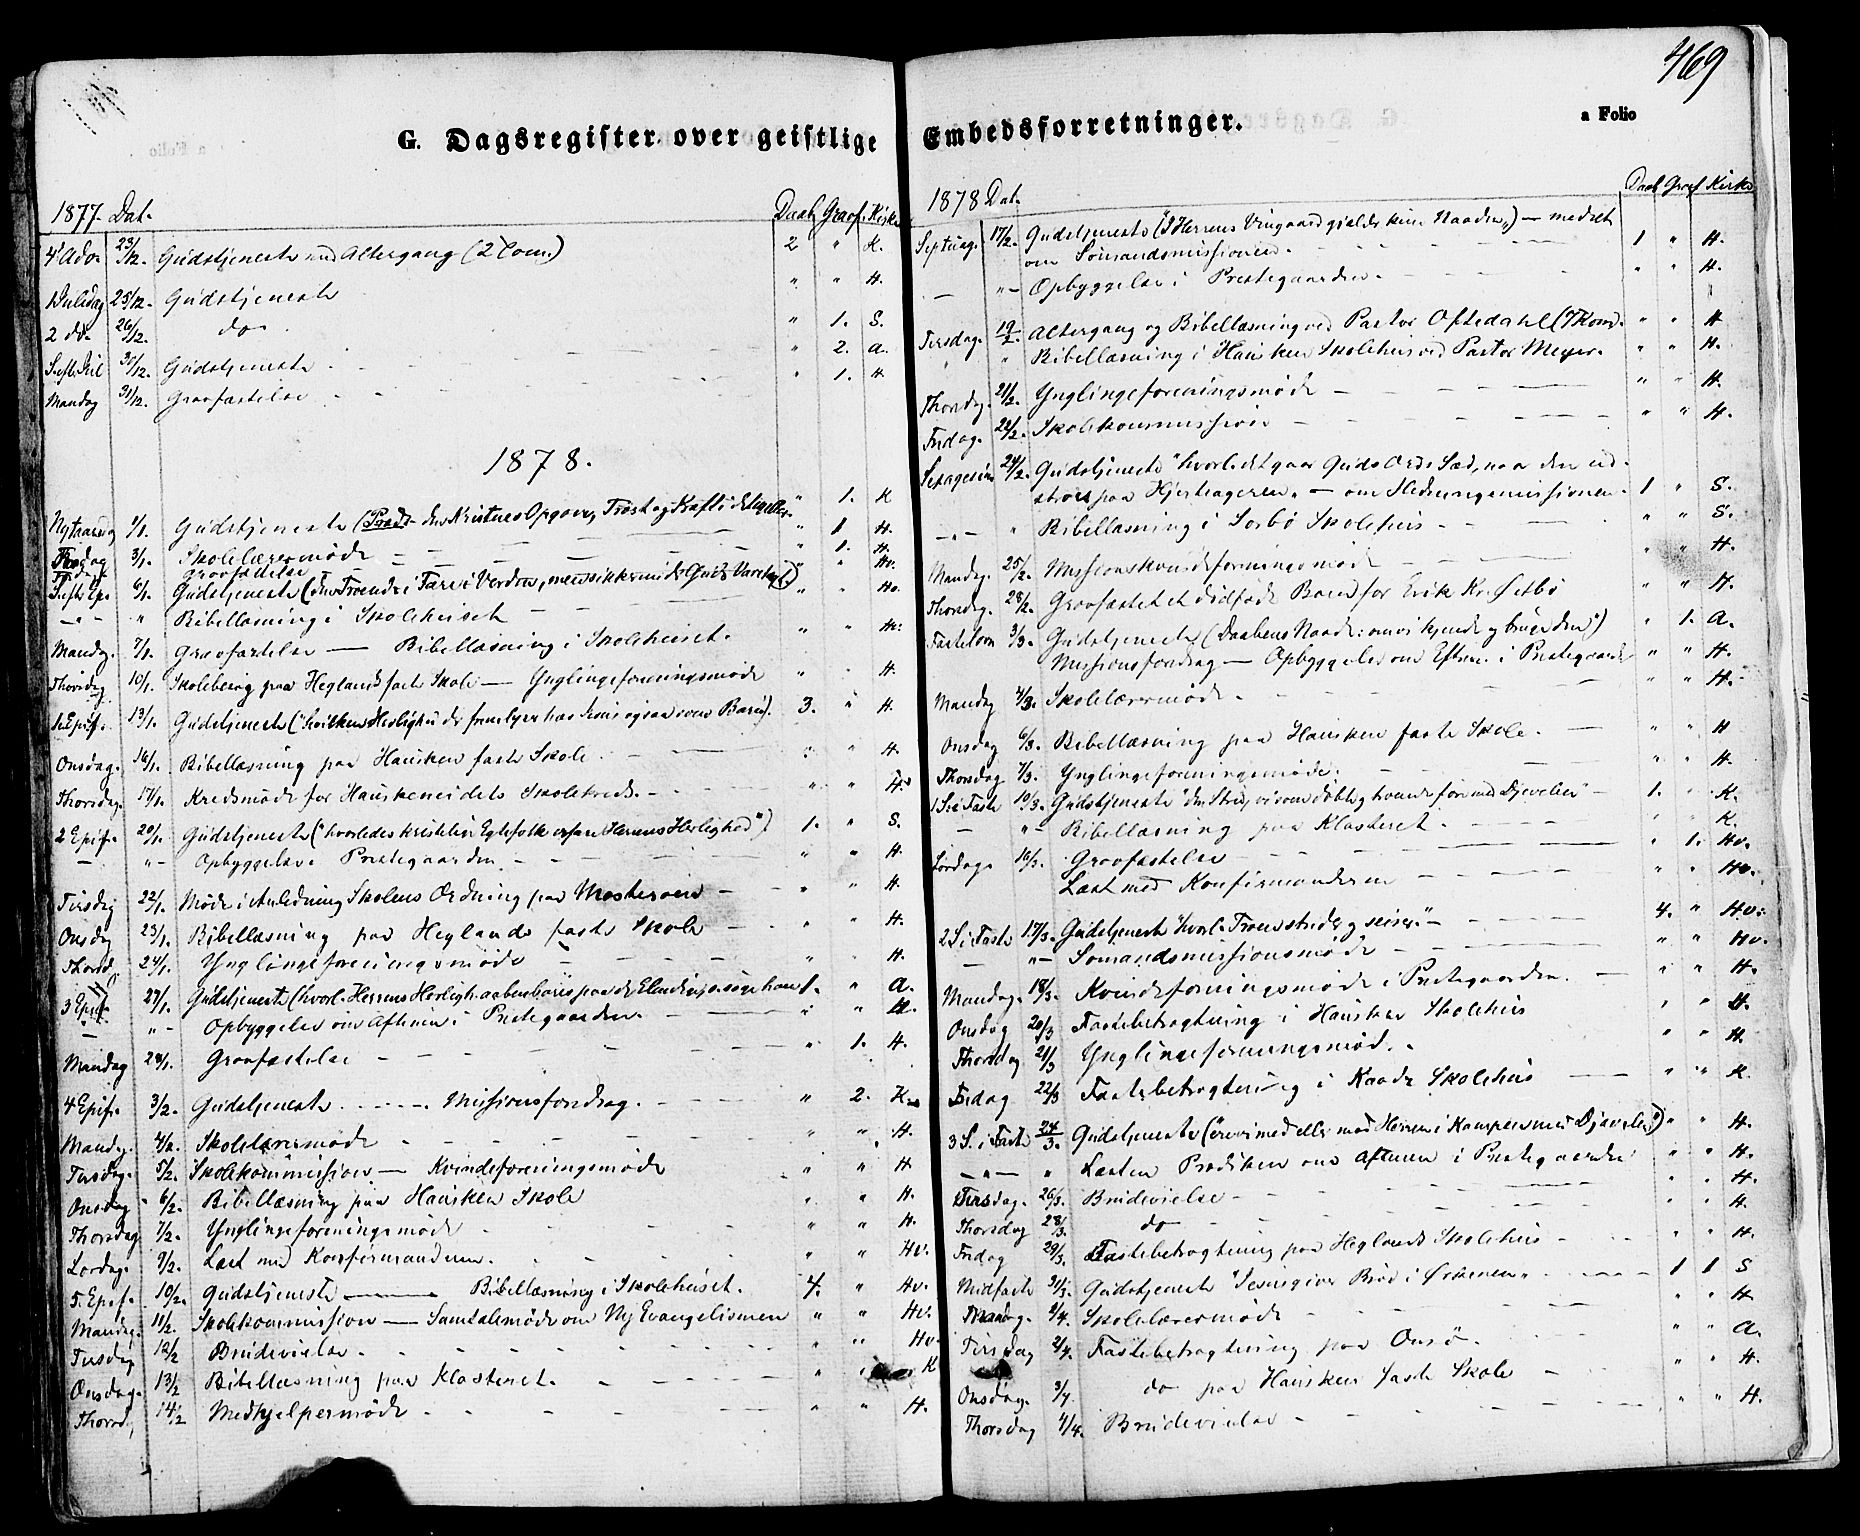 469
G. Dagsregister over geistlige Embedsforretninger.
a Folio
1877. Dat. Daab Grav. Kirke
4 Adv. 23/12. Gudstjeneste med Altergang (2 Com.) 2 " K.
1 Juledag 25/12. Gudstjeneste " " H.
2 do. 26/12. do " 1. S.
S. eft. Jul 30/12. Gudstjeneste " 2. A.
Mandag 31/12. Gravfæstelse " 1. H.
1878.
Nytaarsdag 1/1. Gudstjeneste " 1. K
3/1. Skolelærermøde " 1 H.
Gravfæstelse " 1. H.
6/1. Gudstjeneste " " Hv.
" Bibellæsning i Skolehuset " " Hv.
Mandag. 7/1. Gravfæstelse — Bibellæsning i Skolehuset. " "
Thorsdag 10/1. Skolebesøg paa Heglands faste Skole — Ynglingeforeningsmøde " " H.
1 Epif. 13/1. Gudstjeneste 3. " H.
Onsdag. 16/1. Bibellæsning paa Hausken faste Skole. " " H.
Thorsdag. 17/1. Kredsmøde for Hauskeneidets Skolekreds. " " H.
2 Epif. 20/1. Gudstjeneste ("hvorledes kristelige Egtefolk erfare Herrens Herlighed") 1. " S.
— "- Opbyggelse i Prestegaarden " " H.
Tirsdag 22/1. Møde i Anledning Skolens Ordning paa Mosterøen " " H.
Onsdag 23/1. Bibellæsning paa Heglands faste Skole " " H.
Thorsd. 24/1. Ynglingeforeningsmøde " " H.
3 Epif. 27/1. Gudstjeneste 1. " A.
— "- Opbyggelse om Aftenen i Prestegaarden. " " H.
Mandag 28/1. Gravfæstelse " 1. H.
4 Epif. 3/2. Gudstjeneste Missionsforedrag. " 2. K.
Mandag. 4/2. Skolelærermøde " " H.
Tirsdag. 5/2. Skolekommission — Kvindeforeningsmøde " " H
Onsdag 6/2. Bibellæsning paa Hausken Skole " " H.
Thorsdag 7/2. Ynglingeforeningsmøde " " H.
Lørdag. 9/2. Læst med Konfirmanderne. " " Hv.
5. Epif. 10/2. Gudstjeneste — Bibellæsning i Skolehuset. 4. " Hv.
Mandag. 11/2. Skolekommission — Samtalemøde om Ny Evangelismen " " Hv.
Tirsdag 12/2 Brudevielse " " Hv.
Onsdag. 13/2 Bibellæsning paa Klosteret. " K
Thorsd. 14/2 Medhjelpermøde " " H.
1878 Dat. Daab Grav Kirke
Septuag. 17/2. Gudstjeneste ("I Herrens Viingaard gjælder kun Naaden") — meddelt
om Sømandsmissionen. 1 " H.
— "- Opbyggelse i Prestegaarden " " H.
Tirsdag. 19/2. Altergang og Bibellæsning ved Pastor Oftedahl (7 Kom. " " H
" Bibellæsning i Hausken Skolehus ved Pastor Meyer. " " H.
Thorsdag. 21/2. Ynglingeforeningsmøde " " H.
Fredag. 22/2. Skolekommission " " H.
Sexagesima 24/2. Gudstjeneste "hvorl. det gaar Guds Ords Sæd, naar den ud-
strøes paa Hjerteageren" — om Hedningemissionen. 1 " S.
-"- " Bibellæsning i Sørbø Skolehus " " S.
Mandag. 25/2. Missionskvindeforeningsmøde " " H.
Thorsdag. 28/2. Gravfæstet et dødfødt Barn for Erik Kr. Østbø " " H.
Fastelavn 3/3. Gudstjeneste (Daabens Naade: om vi kjende og bruge den") " 1. A.
Missionsforedrag — Opbyggelse om Eftm. i Prestegaarden " " H.
Mandag 4/3. Skolelærermøde. " " H.
Onsdag 6/3. Bibellæsning paa Hausken faste Skole. " " H
Thorsdag 7/3. Ynglingeforeningsmøde. " " H.
1 S. i Faste 10/3. Gudstjeneste "den Strid, vi som døbte g have at føre med Djævelen" 1. " K.
— "- Bibellæsning paa Klosteret. " " K.
Lørdag. 16/3. Gravfæstelse " 1. Hv.
Læst med Konfirmanderne " " Hv.
2 S. i Faste 17/3. Gudstjeneste "hvorl. Troen strider og seirer." 4. " Hv.
— "- Sømandsmissionsmøde " " Hv.
Mandag. 18/3. Kvindeforeningsmøde i Prestegaarden. " " H.
Onsdag 20/3 Fastebetragtning i Hausken Skolehus " " H.
Thorsdag 21/3 Ynglingeforeningsmøde. " " H.
Fredag 22/3 Fastebetragtning i Kaade Skolehus " " K.
3 S. i Faste 24/3. Gudstjeneste ("ere vi med eller mod Herren i Kampen mod Djævelen") " " H.
-"- " Læst en Prædiken om Aftenen i Prestegaarden " " H.
Tirsdag. 26/3. Brudevielse " " H.
Thorsdag 28/3. do " " H.
Fredag 29/3. Fastebetragtning paa Heglands Skolehus " " H.
Midfaste 31/3. Gudstjeneste "Jesus giver Brød i Ørkenen" 1 1 S
Mandag. 1/4. Skolelærermøde " " H.
Tirsdag 2/4. Fastebetragtning paa " " A.
Onsdag. 3/4 do paa Hausken faste Skole " " H.
Thorsdag 4/4. Brudevielse " " H.